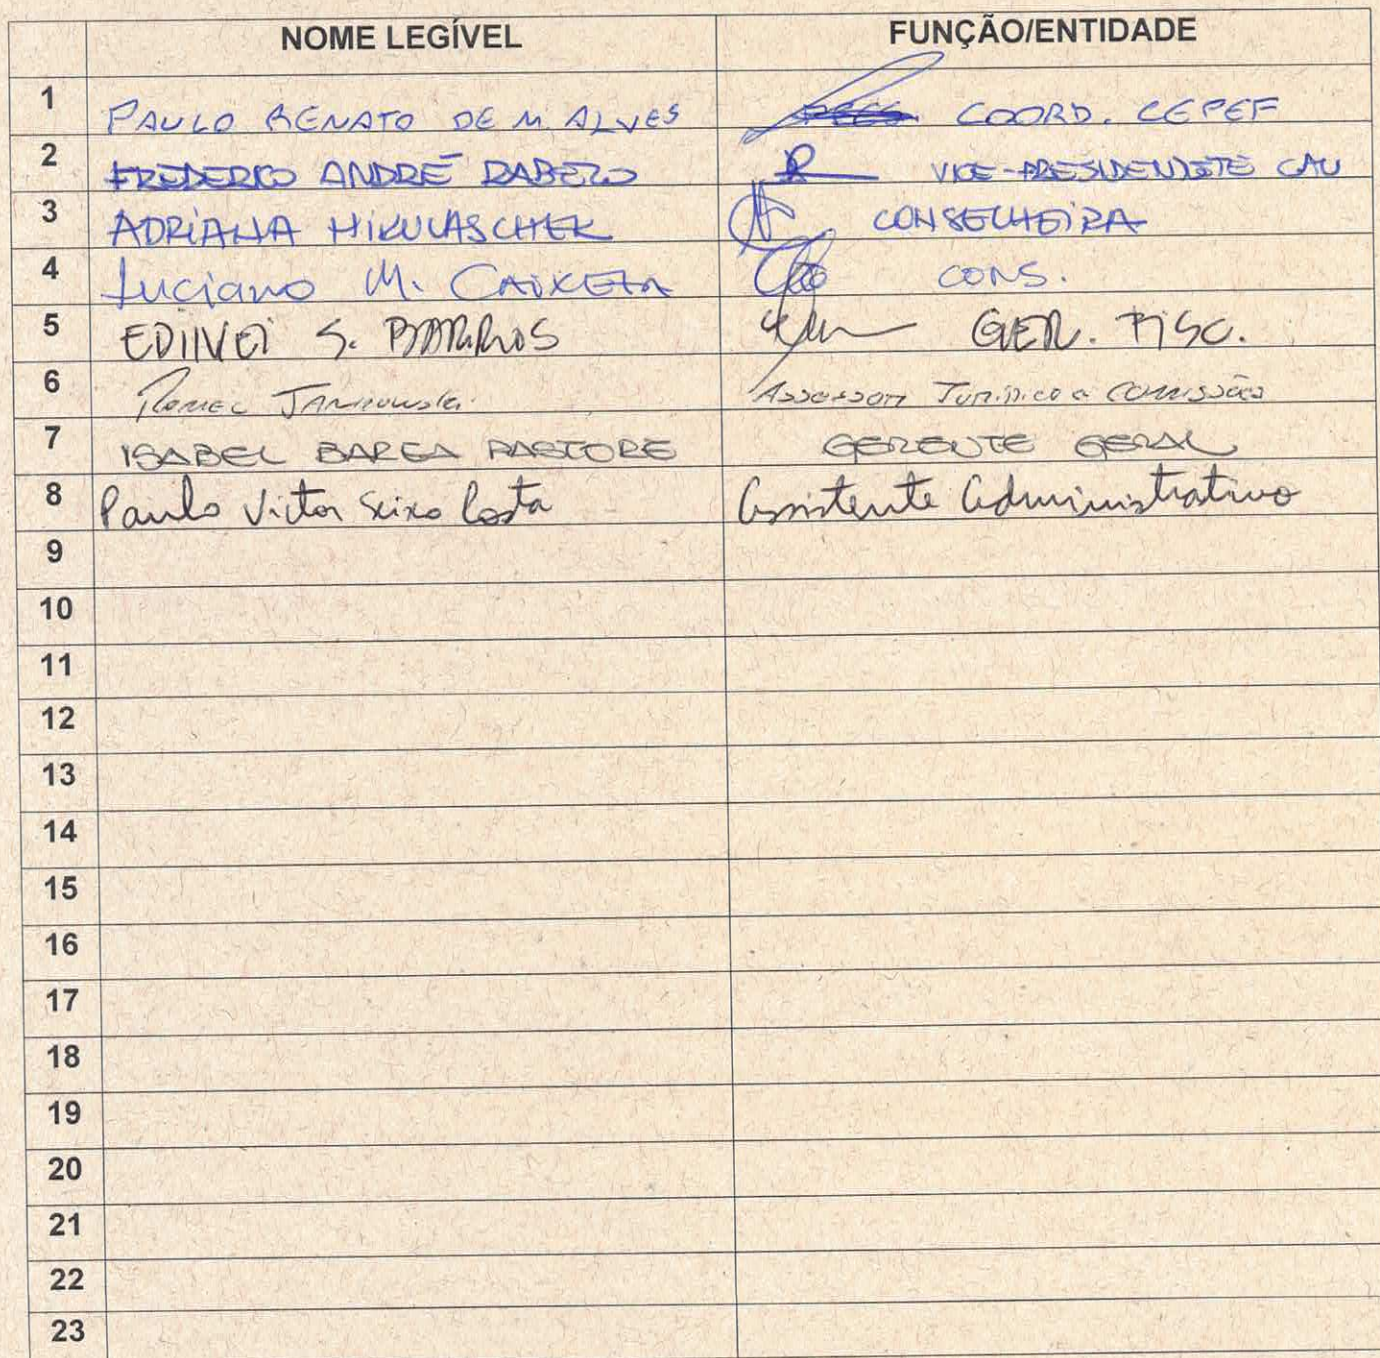 NOME LEGÍVEL FUNÇÃO/ENTIDADE
1 PAULO RENATO DE M. ALVES COORD. CEPEF
2 FREDERICO ANDRÉ RABELO VICE-PRESIDENTE CAU
3 ADRIANA MIKULASCHEK CONSELHEIRA
4 Luciano M. CAIXETA CONS.
5 EDINEI S. BARROS GER. FISC.
6 ROMEU JANKOWSKI ASSESSOR JURÍDICO COMISSÕES
7 ISABEL BAREA PASTORE GERENTE GERAL
8 Paulo Victor Seixo Costa Assistente Administrativo
9
10
11
12
13
14
15
16
17
18
19
20
21
22
23